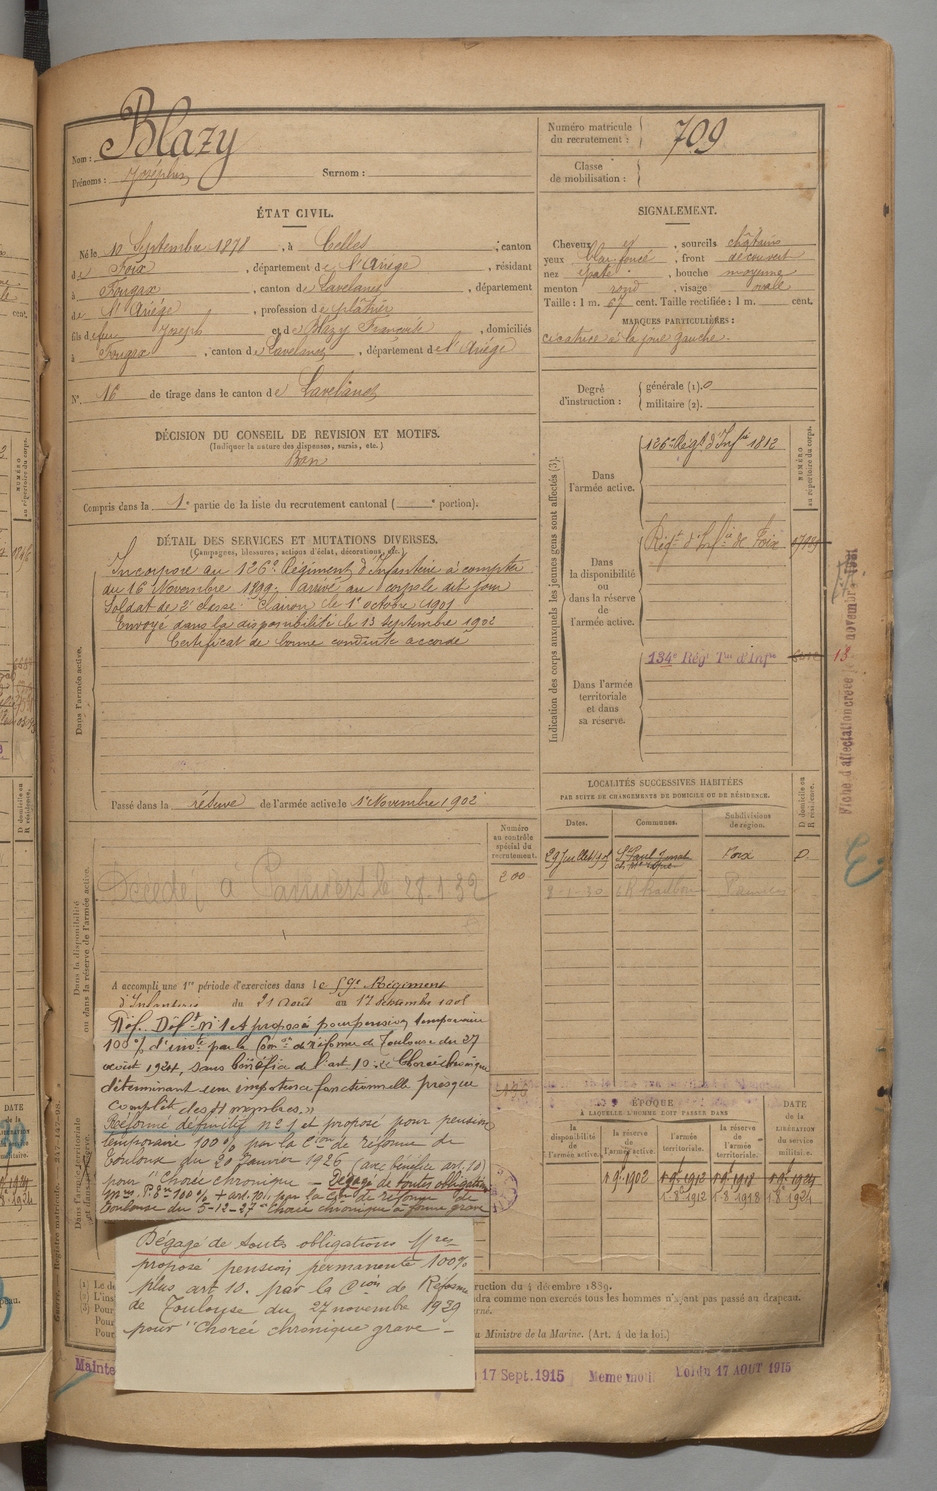 Nom : Blazy
Prénoms : Joséphin Surnom :
Numéro matricule du recrutement : 709
Classe de mobilisation :
ÉTAT CIVIL.
Né le 10 Septembre 1878, à Celles, canton
de Foix, département de l'Ariège, résidant
à Fougax, canton de Lavelanet, département
de l'Ariège, profession de plâtrier
fils de feu Joseph et de Blazy Françoise, domiciliés
à Fougax, canton de Lavelanet, département de l'Ariège
N° 16 de tirage dans le canton de Lavelanet
SIGNALEMENT.
Cheveux et, sourcils châtains
yeux bleu foncé, front découvert
nez épaté, bouche moyenne
menton rond, visage ovale
Taille : 1 m. 67 cent. Taille rectifiée : 1 m. cent.
MARQUES PARTICULIÈRES :
cicatrice à la joue gauche.
Degré d'instruction : générale (1). 0
militaire (2).
DÉCISION DU CONSEIL DE REVISION ET MOTIFS.
(Indiquer la nature des dispenses, sursis, etc.)
Bon
Compris dans la 1e partie de la liste du recrutement cantonal ( e portion).
DÉTAIL DES SERVICES ET MUTATIONS DIVERSES.
(Campagnes, blessures, actions d'éclat, décorations, etc.)
Dans l'armée active.
Incorporé au 126e Régiment d'Infanterie à compter
du 16 Novembre 1899, arrivé au corps le dit jour
Soldat de 2e classe. Clairon le 1er octobre 1901
Envoyé dans la disponibilité le 13 septembre 1902
Certificat de bonne conduite accordé
Passé dans la réserve de l'armée active le 1er Novembre 1902
Indication des corps auxquels les jeunes gens sont affectés (3).
NUMÉRO au répertoire du corps.
Dans l'armée active.
126e Régt d'Infie 1812
Dans la disponibilité ou dans la réserve de l'armée active.
Régt d'Infie de Foix
Dans l'armée territoriale et dans sa réserve.
134e Rég Tal d'Infie
LOCALITÉS SUCCESSIVES HABITÉES
PAR SUITE DE CHANGEMENTS DE DOMICILE OU DE RÉSIDENCE.
D domicile ou R résidence.
Dates. Communes. Subdivisions de région.
St Paul Foix D
8-1-30
Numéro au contrôle spécial du recrutement.
200
Dans la disponibilité ou dans la réserve de l'armée active.
Décédé à Pamiers le 28.1.32
A accompli une 1re période d'exercices dans le 59e Régiment
d'Infanterie du 21 Août au 17 Septembre 1905
Réf. Déf. n° 1 et proposé pour pension temporaire
100% d'invté par la Comon de réforme de Toulouse du 27
août 1924, sans bénéfice de l'art 10. Chorée chronique
déterminant une impotence fonctionnelle presque
complète des 4 membres. »
Réformé définitif n° 1 et proposé pour pension
temporaire 100% par la Cion de réforme de
Toulouse du 20 Janvier 1926 (avec bénéfice art. 10)
pour "Chorée chronique — Dégagé de toutes obligations
mres. 100% + art. 10, par la Con de réforme de
Toulouse du 5-12-27 "Chorée chronique à forme grave
Dégagé de toutes obligations Mres
proposé pension permanente 100%
plus art 10. par la Cion de Réforme
de Toulouse du 27 novembre 1929
pour "Chorée chronique grave —
ÉPOQUE
À LAQUELLE L'HOMME DOIT PASSER DANS
DATE de la LIBÉRATION du service militaire.
la disponibilité de l'armée active. la réserve de l'armée active. l'armée territoriale. la réserve de l'armée territoriale.
1 9e 1902 1 9e 1912 1 9e 1918 1 9e 1924
1 8e 1912 1 8 1918 1 8 1924
ruction du 4 décembre 1889.
dra comme non exercés tous les hommes n'ayant pas passé au drapeau.
Ministre de la Marine. (Art. 4 de la loi.)
Mainte
17 Sept. 1915 Meme motif Loi du 17 AOUT 1915